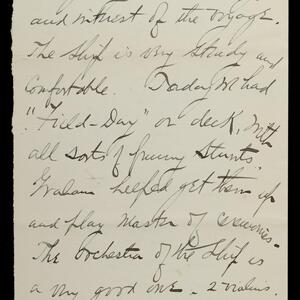 and interest of the voyage.
The ship is very steady and
comfortable. Today we had
"Field-Day" on deck, with
all sorts of funny stunts
Graham helped get them up
and play master of ceremonies-
The orchestra of the ship is
a very good one - 2 violins.